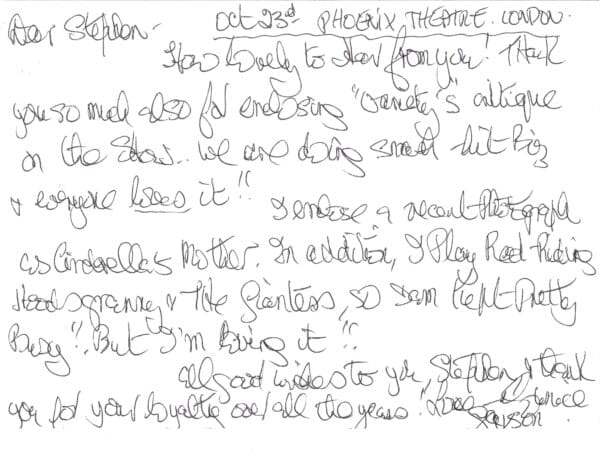 Oct 23rd PHOENIX THEATRE. LONDON.
Dear Stephen-
How lovely to hear from you! Thank
you so much also for enclosing "Variety's" critique
on the Show.. We are doing smash hit biz
& everyone loves it!!
I enclose a recent Photograph
as Cinderella's Mother. In addition, I Play Red Riding
Hood's granny & The Giantess, so I am Kept Pretty
Busy!! But I'm loving it!!
All good wishes to you, Stephen, & thank
you for your loyalty over all the years. Love